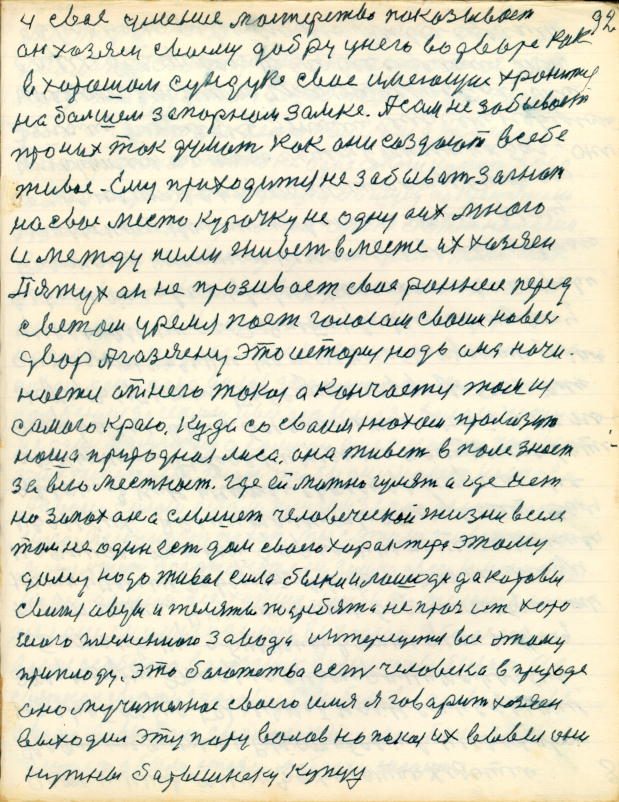 92
и свае умение мастерство паказывает
он хозяен своему добру унего водворе как
в хорошом сундуке свае имеющие хранится
на балшем запорнам замке. А сам не забывает
про них так думат как они саздают в себе
живое. Ему приходится не забыват загнат
на свае место курачку не одну аих много
и между ними живет вместе их хозяен
Петух ан не празивает свае раннее перед
светом уремя пает голасам своим навес
двор А газяену это исторя надо ана начи-
наетця отнего такая а канчаетця там и у
самого краю. Куда со сваим нюхам пролизит
наша природная лиса. она живет в поле знает
за всю местност. где ей можно гулят а где нет
но запох ана слышет человеческой жизни всем
там не один ест дом своего характера этому
дому надо живае сила быки и лошади да каровы
свиня авцы и телята жаребята не проч от хоро
шого племенного завода интересуетця все этому
приплоду. Это багатства ест человека в природе
оно мучителное своего имя я гаварит хозяен
выходил эту пару валов напакая их вывел они
нужны батышнеку купцу